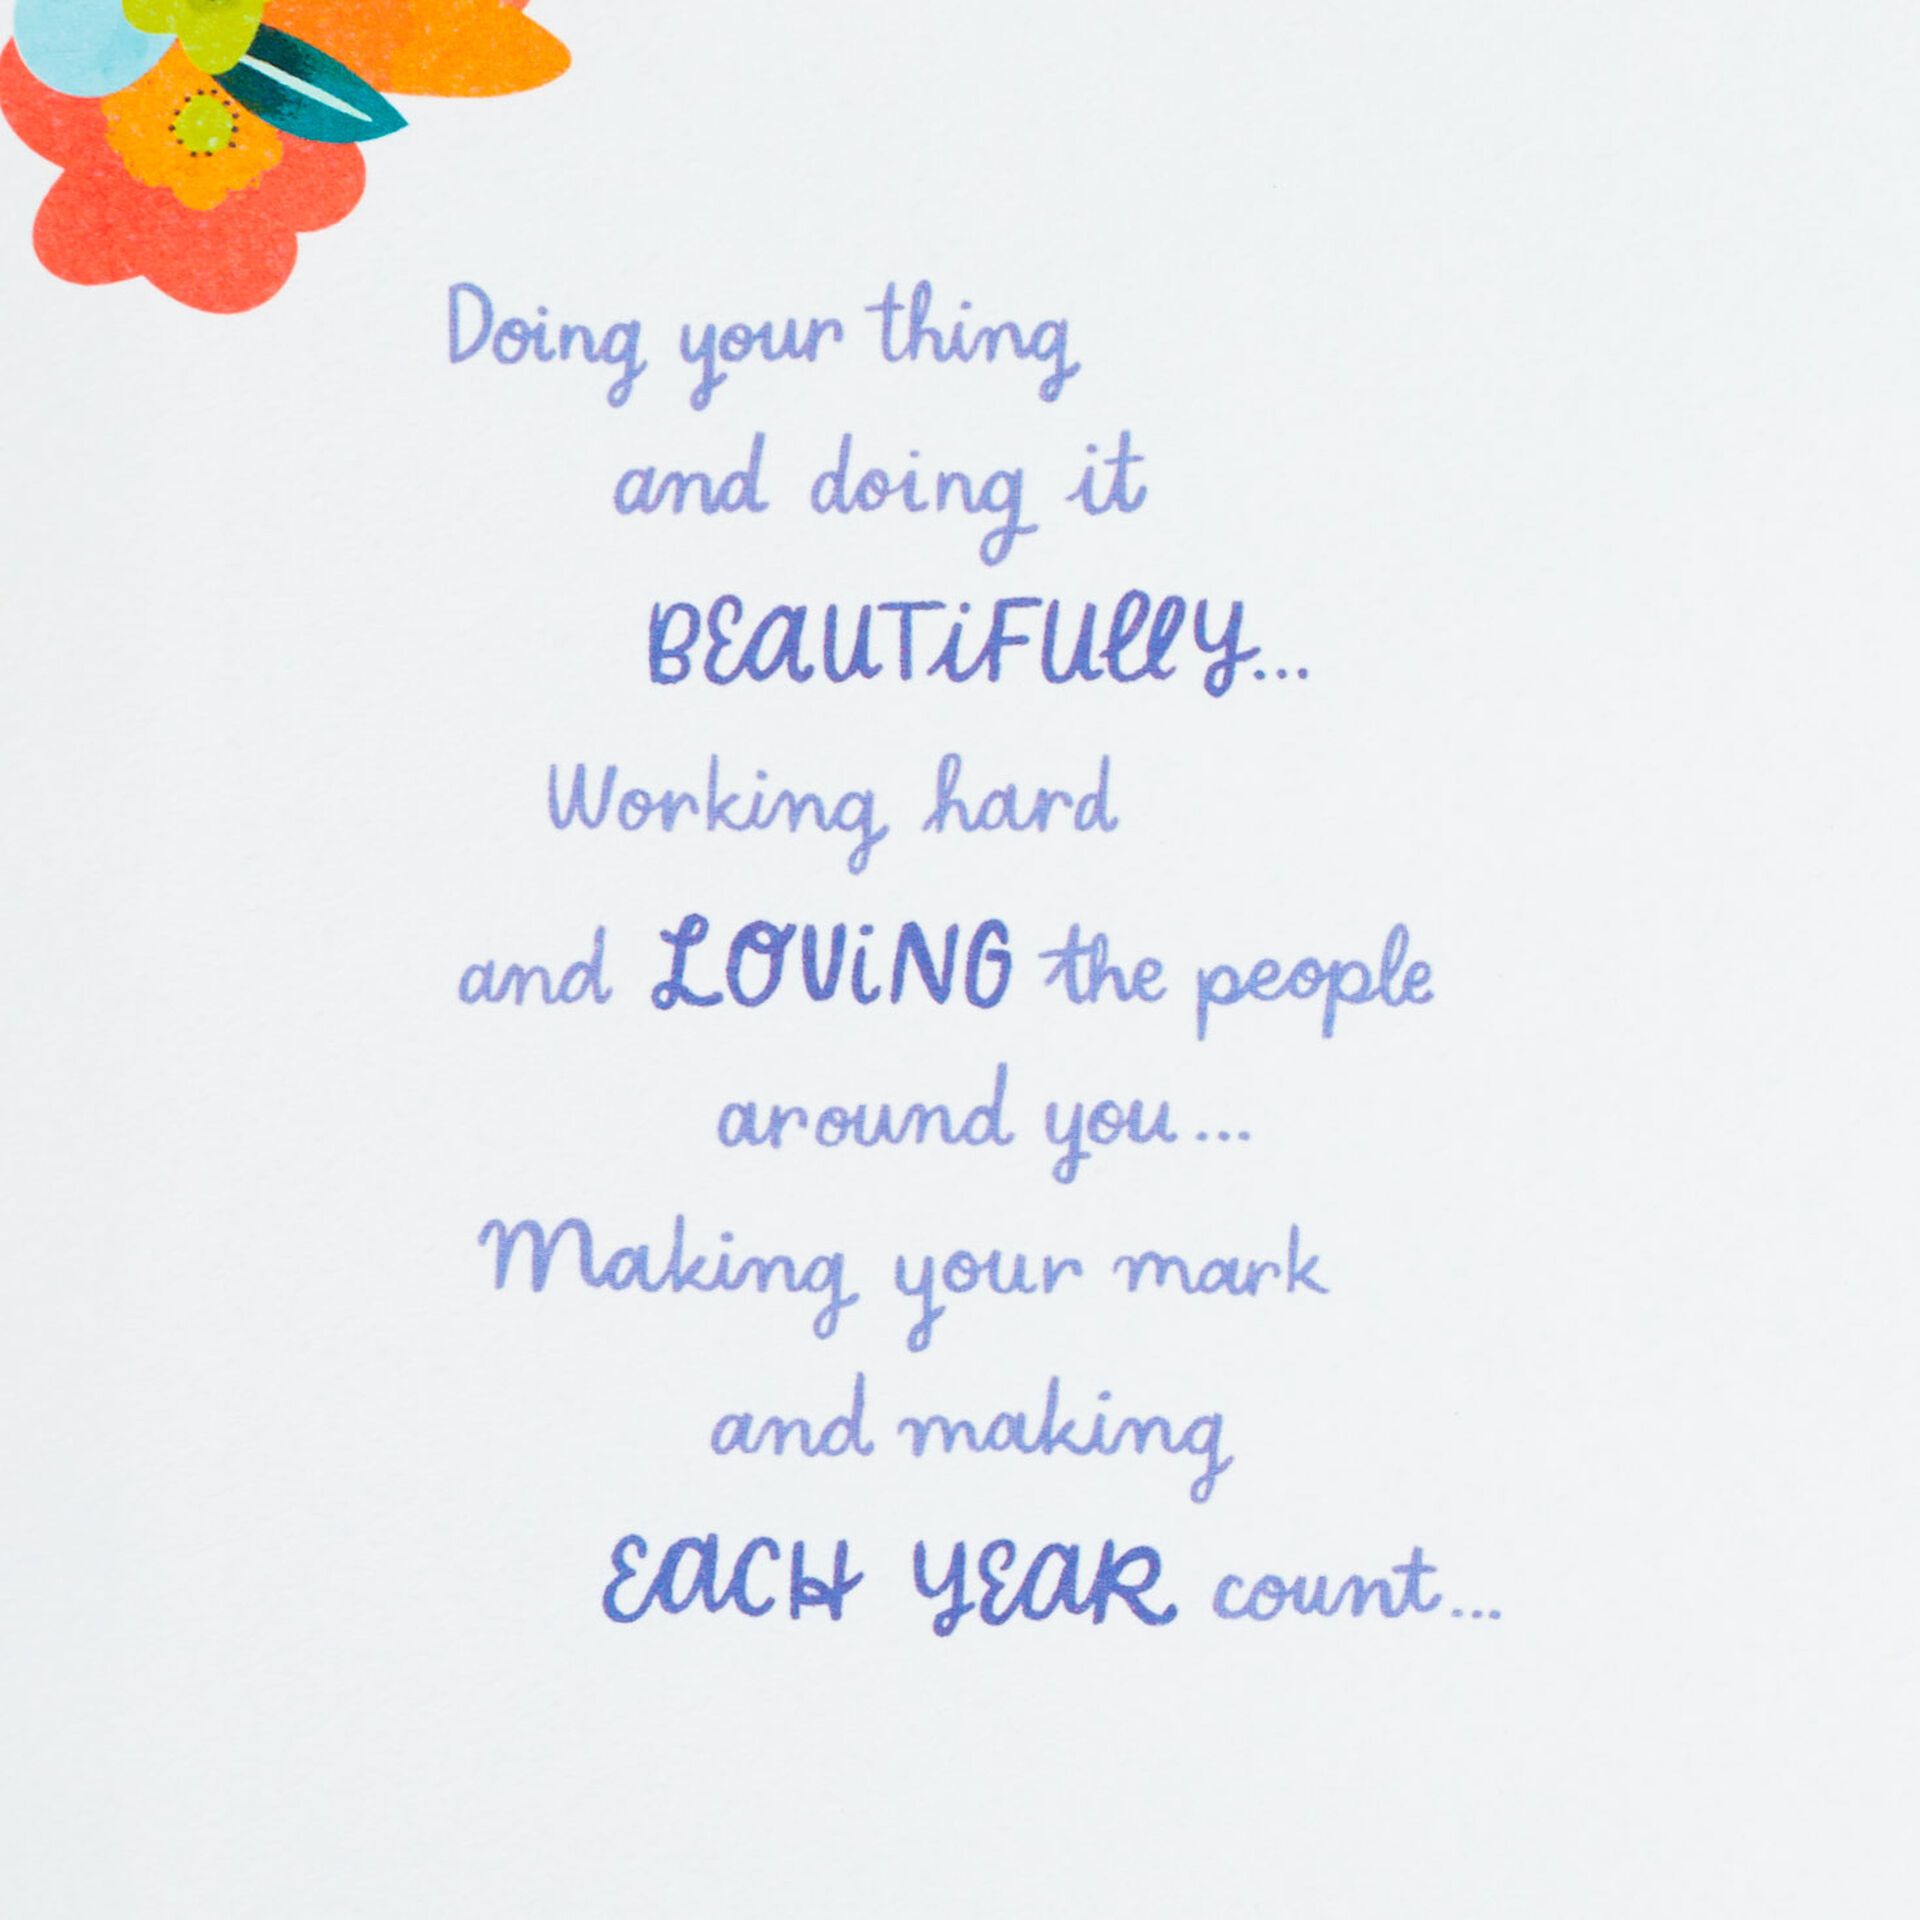 Doing your thing
and doing it
BEAUTiFULLY...
Working hard
and LOViNG the people
around you...
Making your mark
and making
EACH YEAR count...